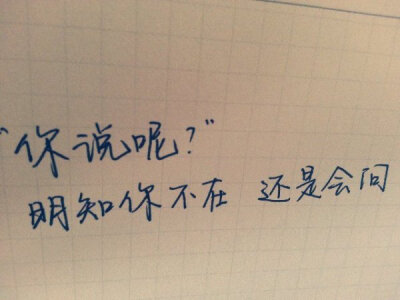 “你说呢？”
明知你不在 还是会问